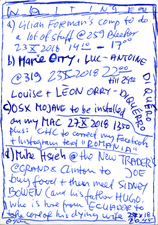 WAITING
a) Lilian Forman's comp to do
a lot of stuff @ 259 Bleecker
23 X 2018 1410 - 1700
b) Marie Orry, LUC-ANTOINE
@319 23 X 2018 2200
Louise + LEON ORRY - DIQUERO
DIQUERO
c) OSX MOJAVE to be installed
on my MAC 27 X 2018 1350
plus: CHC to connect my Facebook
+ Instagram text "ROMANIA"
d) Mike Hsieh @ the New TRADER
JOE
@ GRAND & Clinton to
buy food + then meet SIDNEY
BOWEN (and his father HUGO,
who is here from ECUADOR to
take care of his dying wife 27 X 18